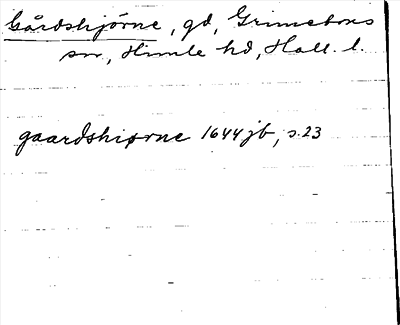 Gårdshjörne, gd, Grimetons
sn, Himle hd, Hall. l.
gaardshiørne 1644 jb, s. 23